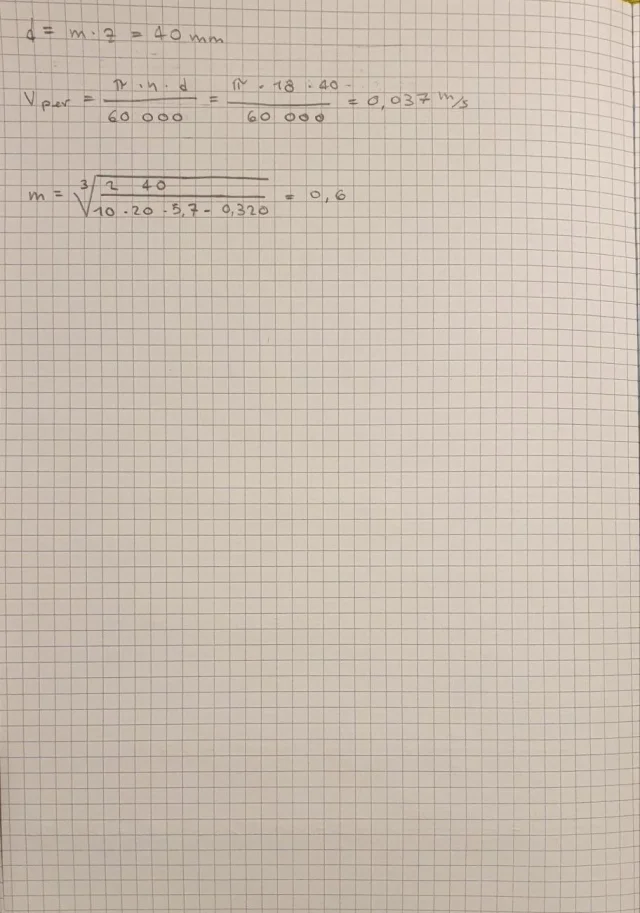 d = m · z = 40 mm
V per = π · n · d / 60 000 = π · 18 · 40 / 60 000 = 0,037 m/s
m = ∛(2 40 / 10 · 20 · 5,7 - 0,320) = 0,6